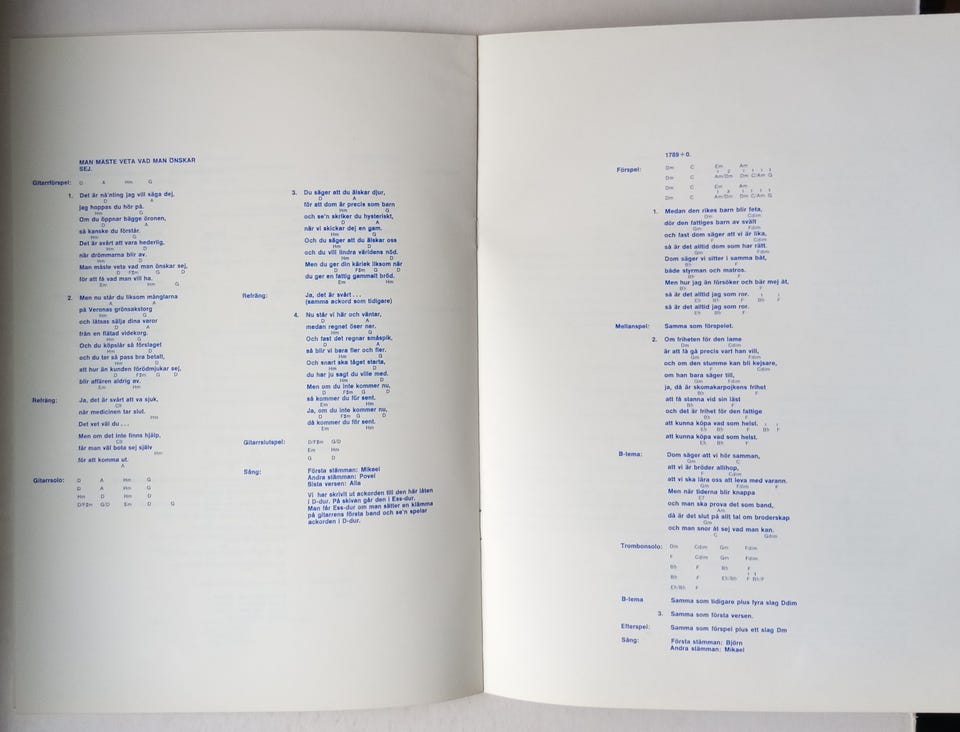 MAN MÅSTE VETA VAD MAN ÖNSKAR
SEJ.
Gitarrförspel: D A Hm G
1. Det är nå'nting jag vill säga dej,
D A
jeg hoppas du hör på.
Hm G
Om du öppnar bägge öronen,
D A
så kanske du förstår.
Hm G
Det är svårt att vara hederlig,
Hm D
när drömmarna blir av.
Hm D
Man måste veta vad man önskar sej,
D F#m G D
för att få vad man vill ha.
Em Hm G
2. Men nu står du liksom månglarna
A A
på Veronas grönsakstorg
Hm G
och låtsas sälja dina varor
D A
från en flätad videkorg.
Hm G
Och du köpslår så förslaget
Hm D
och du tar så pass bra betalt,
Hm D
att hur än kunden förödmjukar sej,
D F#m G D
blir affären aldrig av.
Em Hm
Refräng: Ja, det är svårt att va sjuk,
C9
när medicinen tar slut.
Hm
Det vet väl du...
Men om det inte finns hjälp,
C9
får man väl bota sej själv
Hm
för att komma ut.
A
Gitarrsolo: D A Hm G
D A Hm G
Hm D Hm D
D/F#m G/D Em D G
3. Du säger att du älskar djur,
D A
för att dom är precis som barn
Hm G
och se'n skriker du hysteriskt,
D A
när vi skickar dej en garn.
Hm G
Och du säger att du älskar oss
Hm D
och du vill lindra världens nöd.
Hm D
Men du ger din kärlek liksom när
D F#m G D
du ger en fattig gammalt bröd.
Em Hm
Refräng: Ja, det är svårt...
(samma ackord som tidigare)
4. Nu står vi här och väntar,
D A
medan regnet öser ner.
Hm G
Och fast det regnar småspik,
D A
så blir vi bara fler och fler.
Hm G
Och snart ska tåget starta,
Hm D
du har ju sagt du ville med.
Hm D
Men om du inte kommer nu,
D F#m G D
så kommer du för sent.
Em Hm
Ja, om du inte kommer nu,
D F#m G D
då kommer du för sent.
Em Hm
Gitarrslutspel: D/F#m G/D
Em Hm
G D
Sång: Första stämman: Mikael
Andra stämman: Povel
Sista versen: Alla
Vi har skrivit ut ackorden till den här låten
i D-dur. På skivan går den i Ess-dur.
Man får Ess-dur om man sätter en klämma
på gitarrens första band och se'n spelar
ackorden i D-dur.
1789 + 0.
Förspel: Dm C Em Am
Dm C Am/Dm Dm C/Am G
Dm C Em Am
Dm C Am/Dm Dm C/Am G
1. Medan den rikes barn blir feta,
Dm Cdim
dör den fattiges barn av svält
Gm Fdim
och fast dom säger att vi är lika,
F Cdim
så är det alltid dom som har rätt.
Gm Fdim
Dom säger vi sitter i samma båt,
Bb F
både styrman och matros.
Bb F
Men hur jag än försöker och bär mej åt,
så är det alltid jag som ror.
Eb Bb F Bb F
så är det alltid jag som ror.
Eb Bb F
Mellanspel: Samma som förspelet.
2. Om friheten för den lame
Dm Cdim
är att få gå precis vart han vill,
Gm Fdim
och om den stumme kan bli kejsare,
F Cdim
om han bara säger till,
Gm Fdim
ja, då är skomakarpojkens frihet
Bb F
att få stanna vid sin läst
Bb F
och det är frihet för den fattige
att kunna köpa vad som helst.
Eb Bb F Bb F
att kunna köpa vad som helst.
Eb Bb F
B-tema: Dom säger att vi hör samman,
Gm C
att vi är bröder allihop,
F Cdim
att vi ska lära oss att leva med varann.
Gm Fdim F
Men när tiderna blir knappa
E7
och man ska prova det som band,
Am
då är det slut på allt tal om broderskap
Gm
och man snor åt sej vad man kan.
C Gdim
Trombonsolo: Gm Cdim Gm Fdim
F Cdim Gm Fdim
Bb F Bb F
Bb F Eb/Bb F Bb/F
Eb/Bb F
B-tema Samma som tidigare plus fyra slag Ddim
3. Samma som första versen.
Efterspel: Samma som förspel plus ett slag Dm
Sång: Första stämman: Björn
Andra stämman: Mikael